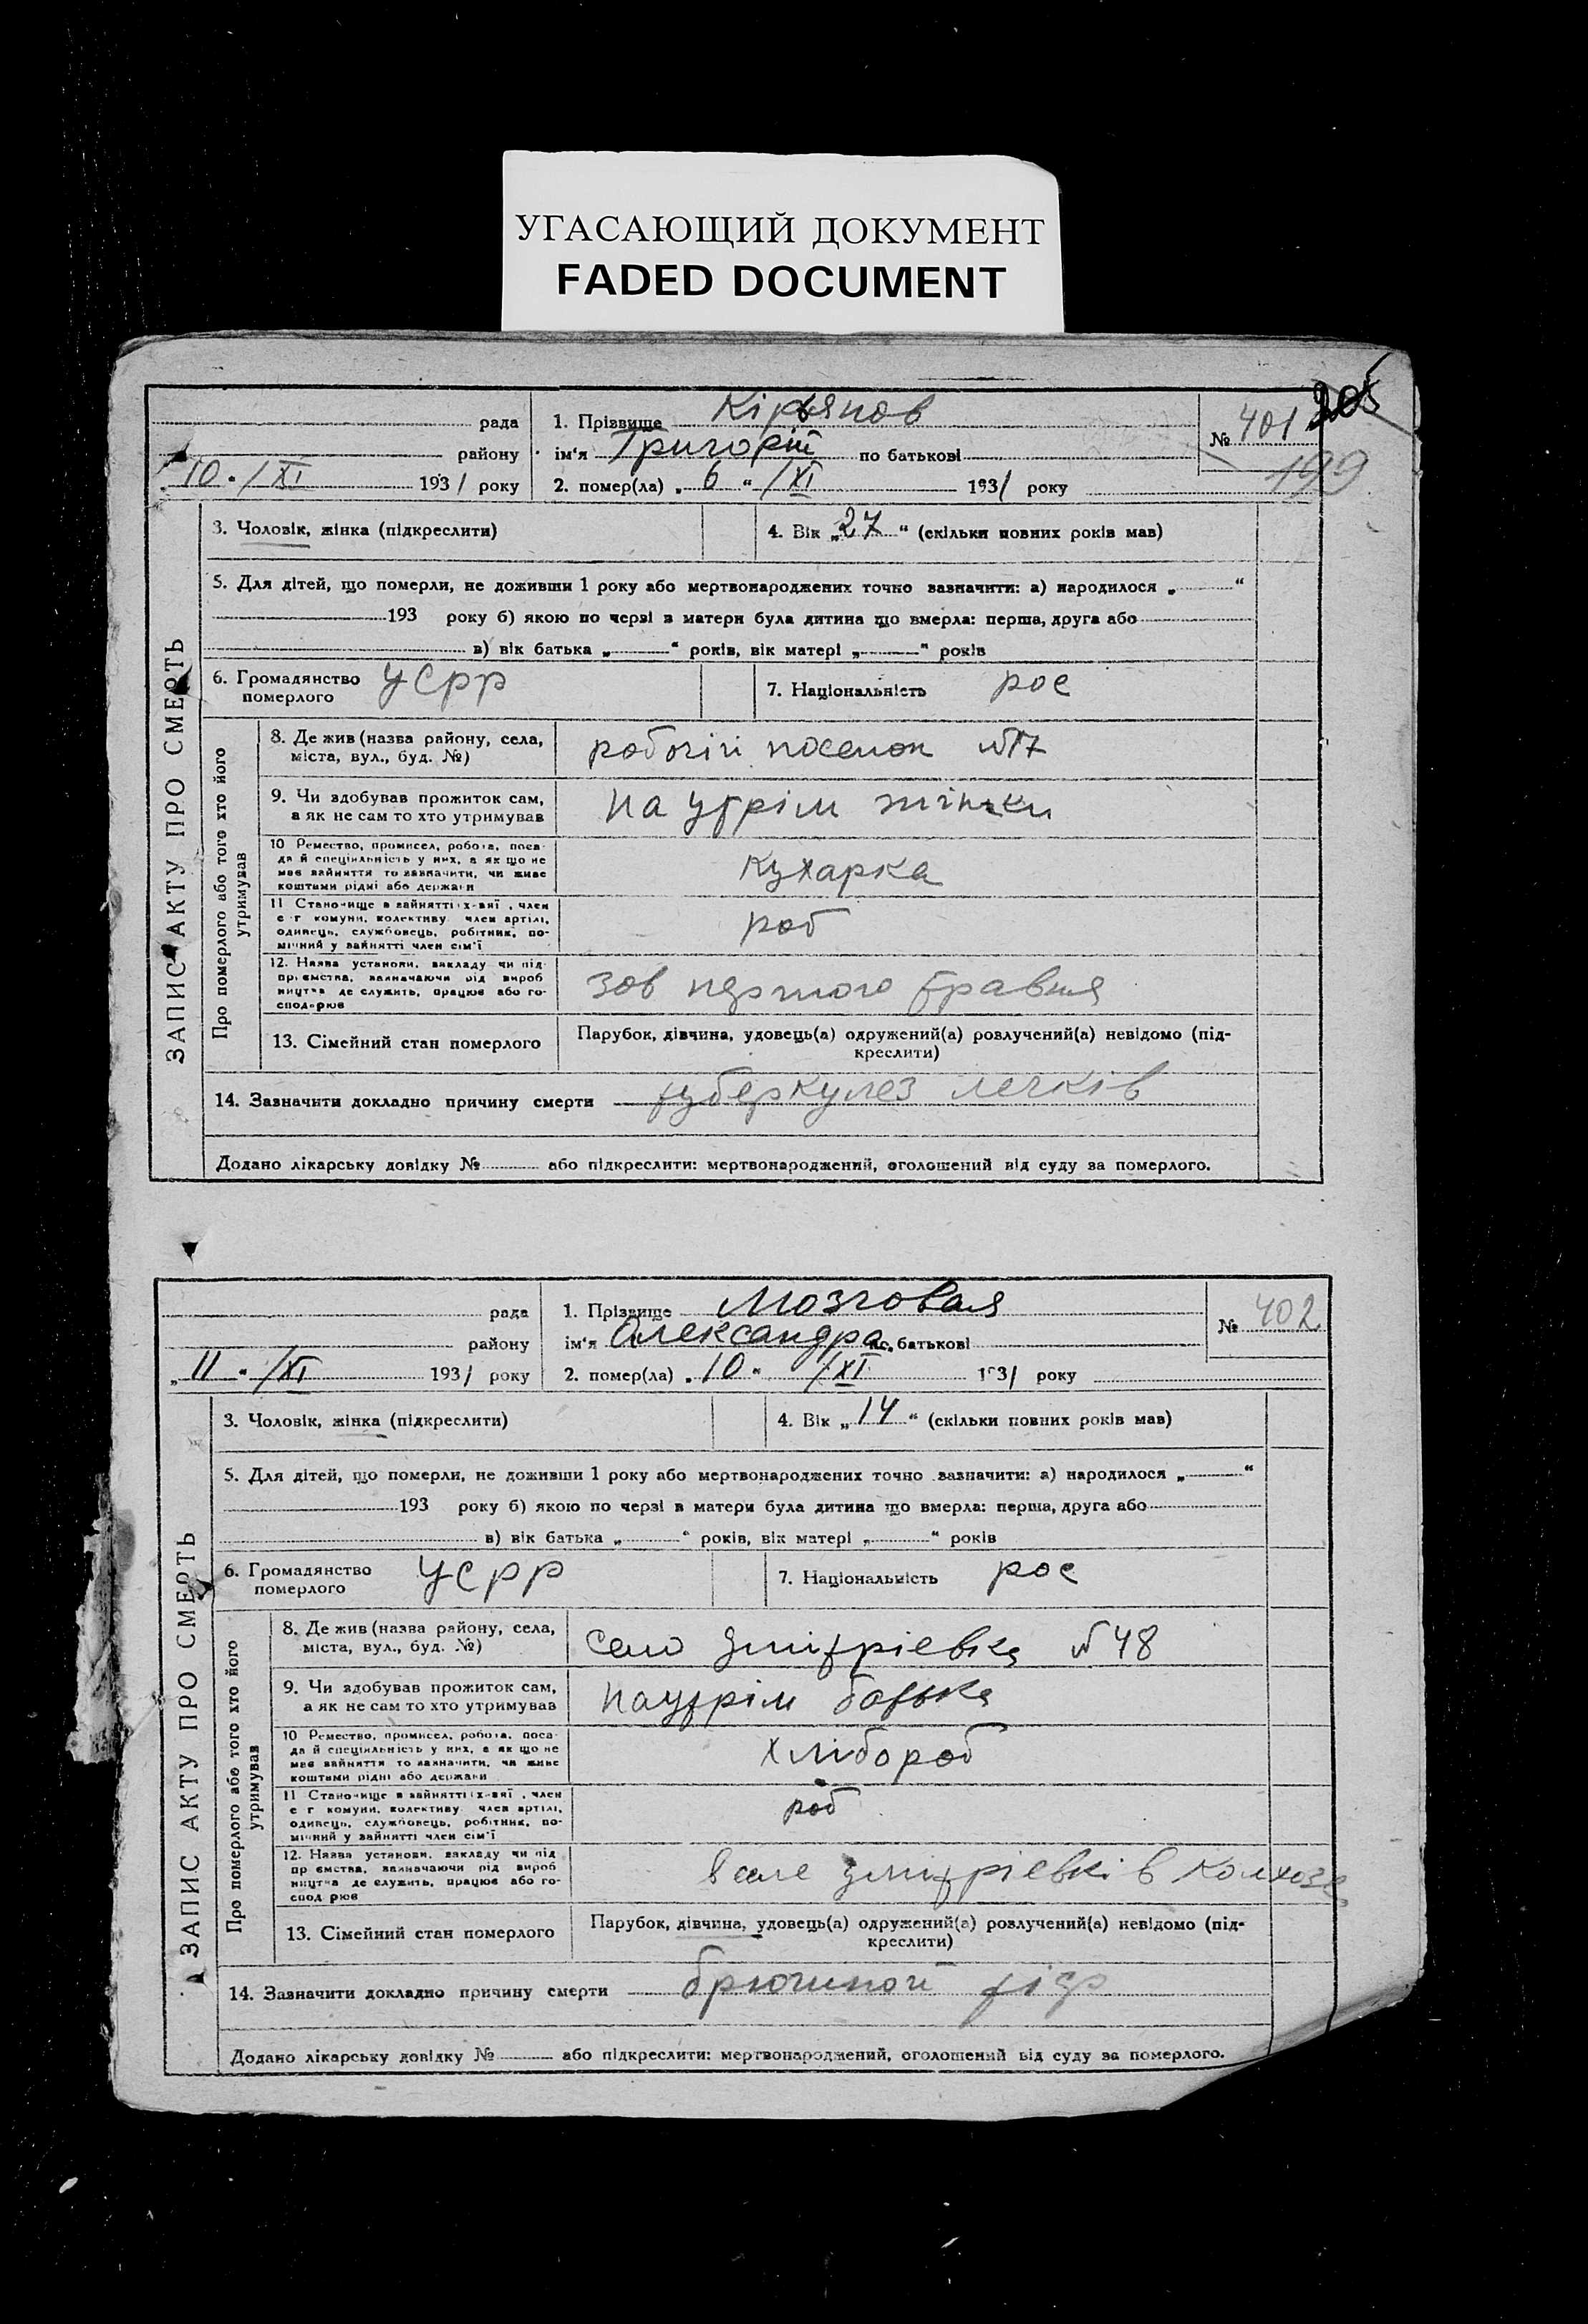 УГАСАЮЩИЙ ДОКУМЕНТ
FADED DOCUMENT
205
199
ЗАПИС АКТУ ПРО СМЕРТЬ
рада
району
„10 „ /XI 1931 року
1. Прізвище Кірьянов
ім'я Григорій по батькові
2. помер(ла) „ 6 “ /XI 1931 року
№ 401
3. Чоловік, жінка (підкреслити)
4. Вік „27“ (скільки повних років мав)
5. Для дітей, що померли, не доживши 1 року або мертвонароджених точно зазначити: а) народилося „ “
193 року б) якою по черзі в матери була дитина що вмерла: перша, друга або
в) вік батька „ “ років, вік матері „ “ років
6. Громадянство
померлого УСРР
7. Національність рос
Про померлого або того хто його
утримував
8. Де жив (назва району, села,
міста, вул., буд. №)
робочій поселок №17
9. Чи здобував прожиток сам,
а як не сам то хто утримував
на утрім жінки
10 Ремество, промисел, робота, поса-
да й спеціяльність у них, а як що не
має зайняття то зазначити, чи живе
коштами рідні або держави
кухарка
11 Становище в зайнятті член
с г комуни, колективу член артілі,
одинець, службовець, робітник, по-
мічний у зайнятті член сім'ї
роб
12. Назва установи, закладу чи під-
приємства, зазначаючи рід вироб
ництва де служить, працює або го-
сподарює
зов першого травня
13. Сімейний стан померлого
Парубок, дівчина, удовець(а) одружений(а) розлучений(а) невідомо (під-
креслити)
14. Зазначити докладно причину смерти туберкулез легків
Додано лікарську довідку № або підкреслити: мертвонароджений, оголошений від суду за померлого.
ЗАПИС АКТУ ПРО СМЕРТЬ
рада
району
„11 „ /XI 1931 року
1. Прізвище Мозговая
ім'я Олександра по батькові
2. помер(ла) „10“ /XI 1931 року
№ 402
3. Чоловік, жінка (підкреслити)
4. Вік „14“ (скільки повних років мав)
5. Для дітей, що померли, не доживши 1 року або мертвонароджених точно зазначити: а) народилося „ “
193 року б) якою по черзі в матери була дитина що вмерла: перша, друга або
в) вік батька „ “ років, вік матері „ “ років
6. Громадянство
померлого УСРР
7. Національність рос
Про померлого або того хто його
утримував
8. Де жив (назва району, села,
міста, вул., буд. №)
село Дмитріевка №48
9. Чи здобував прожиток сам,
а як не сам то хто утримував
на утрім батька
10 Ремество, промисел, робота, поса-
да й спеціяльність у них, а як що не
має зайняття то зазначити, чи живе
коштами рідні або держави
хлібороб
11 Становище в зайнятті член
с г комуни, колективу член артілі,
одинець, службовець, робітник, по-
мічний у зайнятті член сім'ї
роб
12. Назва установи, закладу чи під
приємства, зазначаючи рід вироб
ництва де служить, працює або го-
сподарює
в селе Дмитріевкі в колхозе
13. Сімейний стан померлого
Парубок, дівчина, удовець(а) одружений(а) розлучений(а) невідомо (під-
креслити)
14. Зазначити докладно причину смерти брюшной тіф
Додано лікарську довідку № або підкреслити: мертвонароджений, оголошений від суду за померлого.